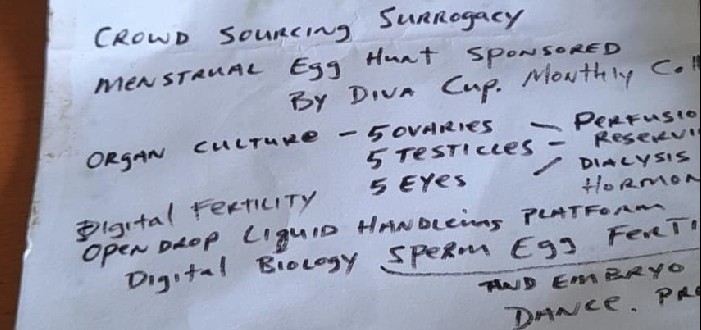 CROWD SOURCING SURROGACY
MENSTRUAL Egg HUNT SPONSORED
BY DIVA CUP. MONTHLY
ORGAN CULTURE - 5 OVARIES - PERFUSIO
5 TESTICLES - RESERVI
5 EYES / DIALYSIS
HORMON
DIGITAL FERTILITY
OPEN DROP LIQUID HANDLING PLATFORM
DIGITAL BIOLOGY SPERM Egg FERTI
AND EMBRYO
DANCE. PR